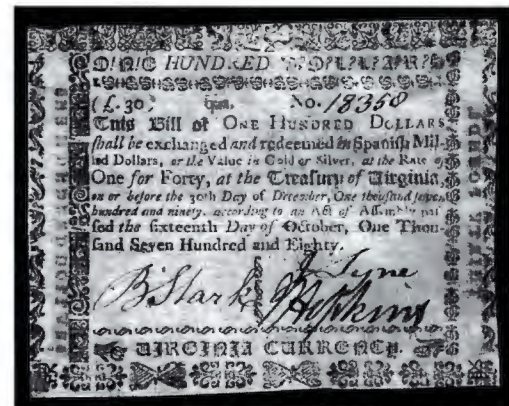 O!N!E HUNDRED D!O!L!L!A!R!S
(£.30) No. 18358
This Bill of ONE HUNDRED DOLLARS
shall be exchanged and redeemed in Spanish Mil-
led Dollars, or the Value in Gold or Silver, at the Rate of
One for Forty, at the Treasury of Virginia,
on or before the 30th Day of December, One thousand seven
hundred and ninety, according to an Act of Assembly pas-
sed the sixteenth Day of October, One Thou-
sand Seven Hundred and Eighty.
J. Tyne
B. Stark J Hopkins
VIRGINIA CURRENCY.